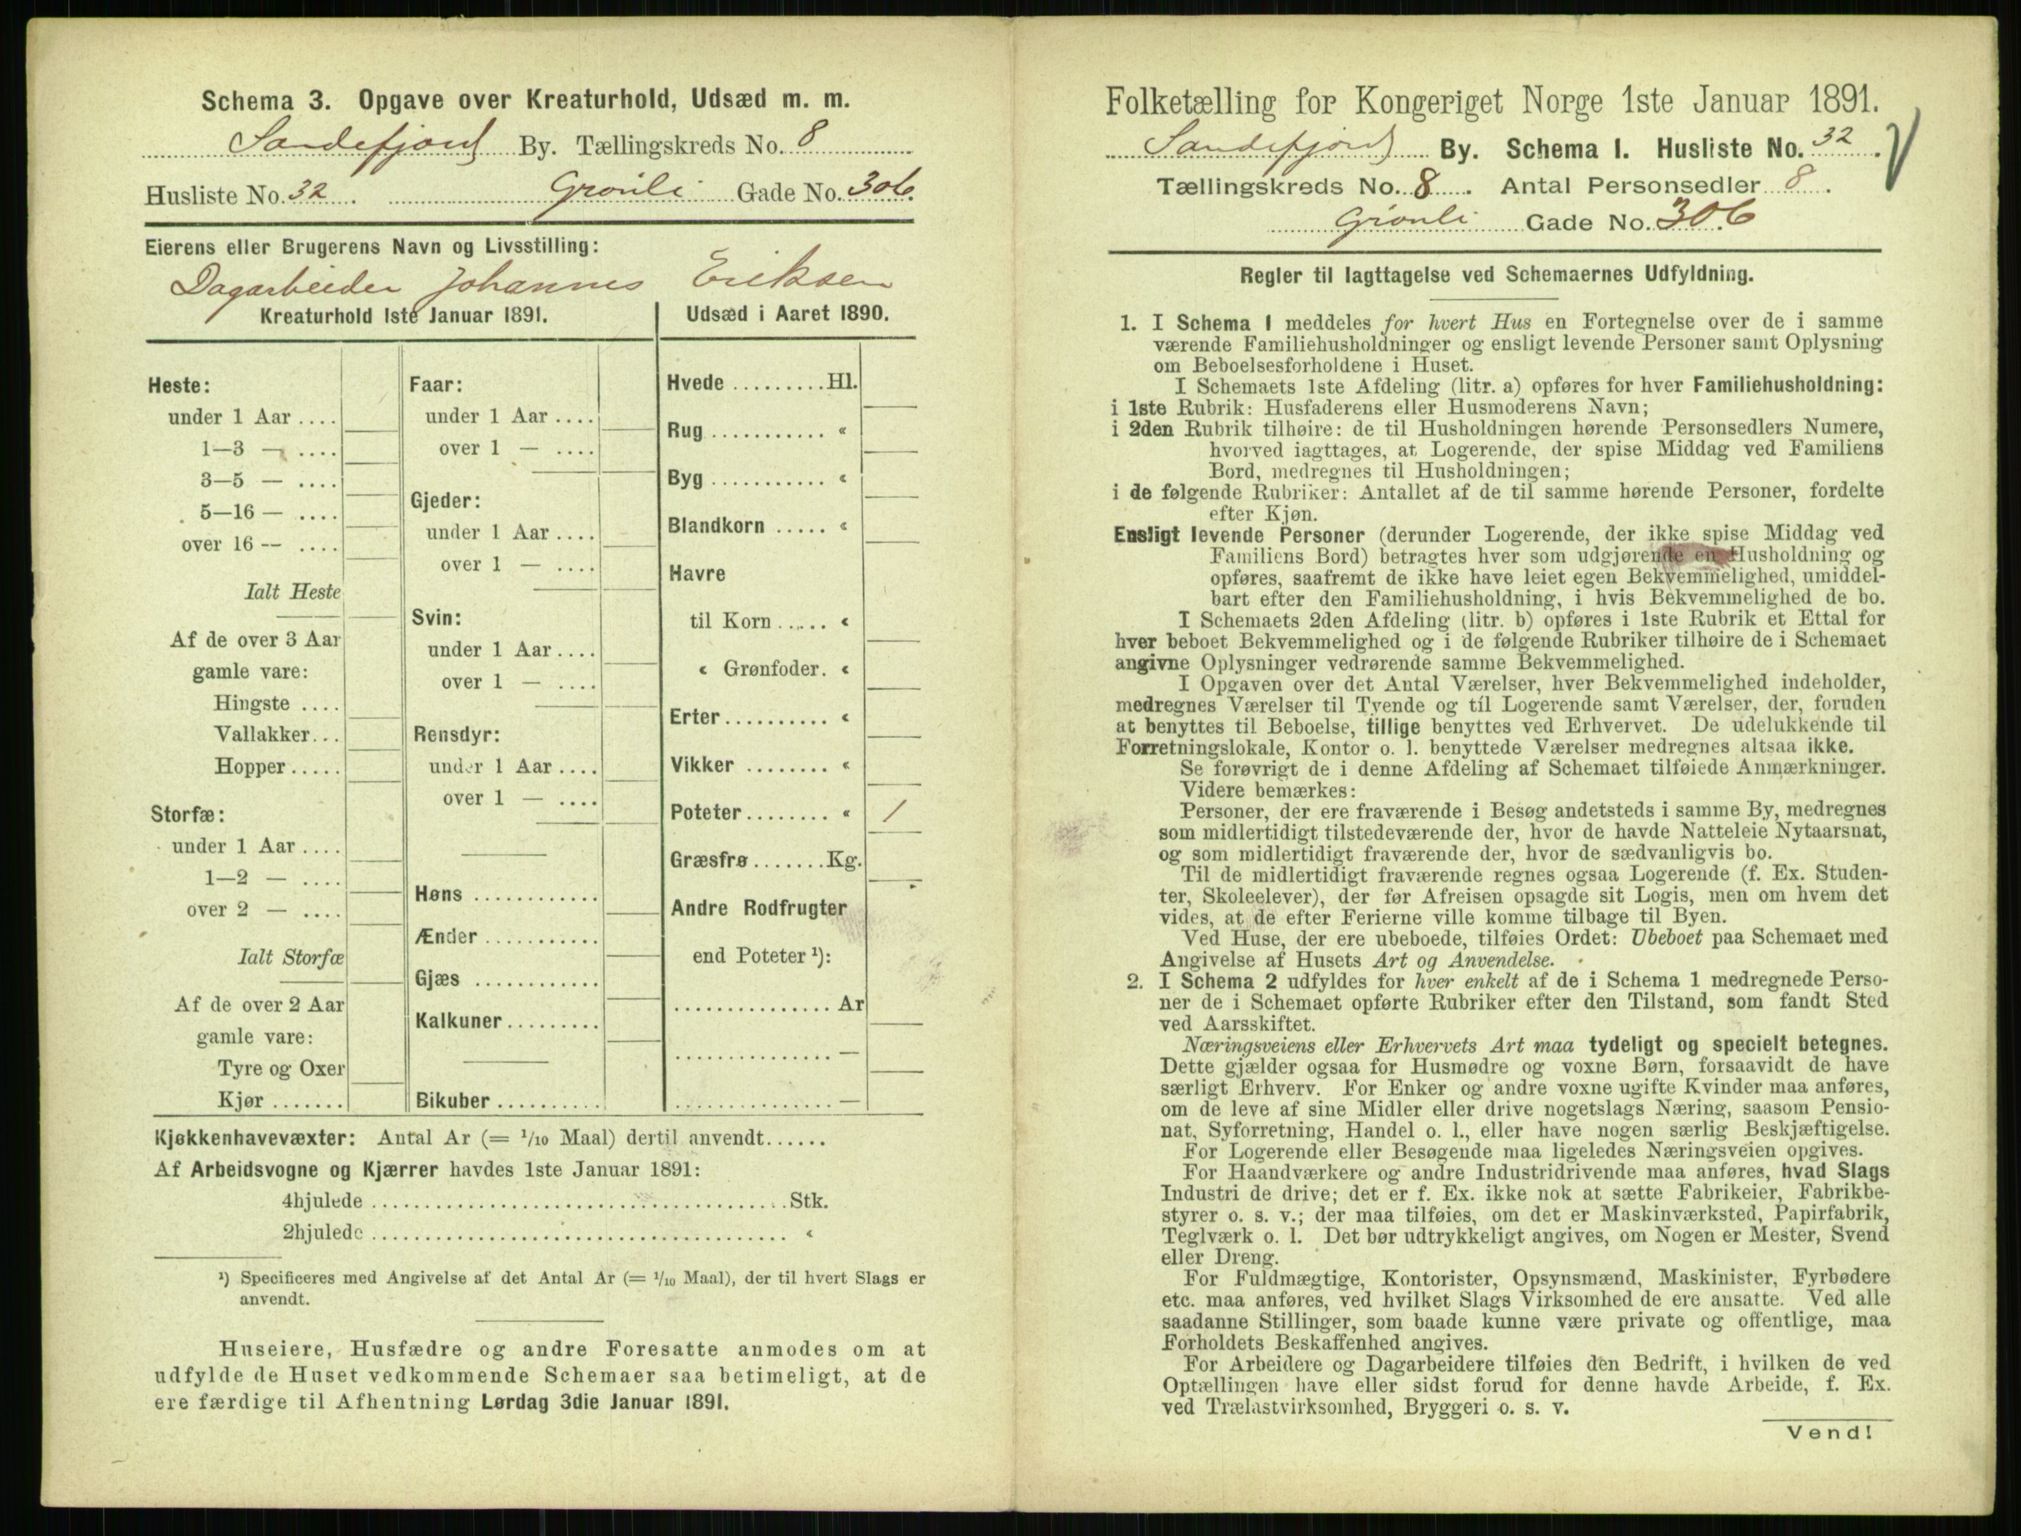 Schema 3. Opgave over Kreaturhold, Udsæd m. m.
Sandefjord By. Tællingskreds No. 8
Husliste No. 32 Grønli Gade No. 306
Eierens eller Brugerens Navn og Livsstilling:
Dagarbeider Johannes Eriksen
Kreaturhold 1ste Januar 1891.
Heste:
under 1 Aar ....
1—3 — ....
3—5 — ....
5—16 — ....
over 16 -- ....
Ialt Heste
Af de over 3 Aar
gamle vare:
Hingste ....
Vallakker...
Hopper.....
Storfæ:
under 1 Aar ....
1—2 — ....
over 2 — ....
Ialt Storfæ
Af de over 2 Aar
gamle vare:
Tyre og Oxer
Kjør .......
Faar:
under 1 Aar ....
over 1 — ....
Gjeder:
under 1 Aar ....
over 1 — ....
Svin:
under 1 Aar ....
over 1 — ....
Rensdyr:
under 1 Aar ....
over 1 — ....
Høns ............
Ænder ...........
Gjæs ............
Kalkuner.........
Bikuber ..........
Udsæd i Aaret 1890.
Hvede .........Hl.
Rug ........... «
Byg ........... «
Blandkorn ..... «
Havre
til Korn ..... «
« Grønfoder. «
Erter.......... «
Vikker ........ «
Poteter........ « 1
Græsfrø .......Kg.
Andre Rodfrugter
end Poteter ¹):
............... Ar
............... —
............... —
Kjøkkenhavevæxter: Antal Ar (= 1/10 Maal) dertil anvendt......
Af Arbeidsvogne og Kjærrer havdes 1ste Januar 1891:
4hjulede ....................................... Stk.
2hjulede ....................................... «
¹) Specificeres med Angivelse af det Antal Ar (= 1/10 Maal), der til hvert Slags er
anvendt.
Huseiere, Husfædre og andre Foresatte anmodes om at
udfylde de Huset vedkommende Schemaer saa betimeligt, at de
ere færdige til Afhentning Lørdag 3die Januar 1891.
Folketælling for Kongeriget Norge 1ste Januar 1891.
Sandefjord By. Schema I. Husliste No. 32
Tællingskreds No. 8. Antal Personsedler 8.
Grønli Gade No. 306
Regler til Iagttagelse ved Schemaernes Udfyldning.
1. I Schema I meddeles for hvert Hus en Fortegnelse over de i samme
værende Familiehusholdninger og ensligt levende Personer samt Oplysning
om Beboelsesforholdene i Huset.
I Schemaets 1ste Afdeling (litr. a) opføres for hver Familiehusholdning:
i 1ste Rubrik: Husfaderens eller Husmoderens Navn;
i 2den Rubrik tilhøire: de til Husholdningen hørende Personsedlers Numere,
hvorved iagttages, at Logerende, der spise Middag ved Familiens
Bord, medregnes til Husholdningen;
i de følgende Rubriker: Antallet af de til samme hørende Personer, fordelte
efter Kjøn.
Ensligt levende Personer (derunder Logerende, der ikke spise Middag ved
Familiens Bord) betragtes hver som udgjørende en Husholdning og
opføres, saafremt de ikke have leiet egen Bekvemmelighed, umiddel-
bart efter den Familiehusholdning, i hvis Bekvemmelighed de bo.
I Schemaets 2den Afdeling (litr. b) opføres i 1ste Rubrik et Ettal for
hver beboet Bekvemmelighed og i de følgende Rubriker tilhøire de i Schemaet
angivne Oplysninger vedrørende samme Bekvemmelighed.
I Opgaven over det Antal Værelser, hver Bekvemmelighed indeholder,
medregnes Værelser til Tyende og til Logerende samt Værelser, der, foruden
at benyttes til Beboelse, tillige benyttes ved Erhvervet. De udelukkende til
Forretningslokale, Kontor o. l. benyttede Værelser medregnes altsaa ikke.
Se forøvrigt de i denne Afdeling af Schemaet tilføiede Anmærkninger.
Videre bemærkes:
Personer, der ere fraværende i Besøg andetsteds i samme By, medregnes
som midlertidigt tilstedeværende der, hvor de havde Natteleie Nytaarsnat,
og som midlertidigt fraværende der, hvor de sædvanligvis bo.
Til de midlertidigt fraværende regnes ogsaa Logerende (f. Ex. Studen-
ter, Skoleelever), der før Afreisen opsagde sit Logis, men om hvem det
vides, at de efter Ferierne ville komme tilbage til Byen.
Ved Huse, der ere ubeboede, tilføies Ordet: Ubeboet paa Schemaet med
Angivelse af Husets Art og Anvendelse.
2. I Schema 2 udfyldes for hver enkelt af de i Schema 1 medregnede Perso-
ner de i Schemaet opførte Rubriker efter den Tilstand, som fandt Sted
ved Aarsskiftet.
Næringsveiens eller Erhvervets Art maa tydeligt og specielt betegnes.
Dette gjælder ogsaa for Husmødre og voxne Børn, forsaavidt de have
særligt Erhverv. For Enker og andre voxne ugifte Kvinder maa anføres,
om de leve af sine Midler eller drive nogetslags Næring, saasom Pensio-
nat, Syforretning, Handel o. l., eller have nogen særlig Beskjæftigelse.
For Logerende eller Besøgende maa ligeledes Næringsveien opgives.
For Haandværkere og andre Industridrivende maa anføres, hvad Slags
Industri de drive; det er f. Ex. ikke nok at sætte Fabrikeier, Fabrikbe-
styrer o. s. v.; der maa tilføies, om det er Maskinværksted, Papirfabrik,
Teglværk o. l. Det bør udtrykkeligt angives, om Nogen er Mester, Svend
eller Dreng.
For Fuldmægtige, Kontorister, Opsynsmænd, Maskinister, Fyrbødere
etc. maa anføres, ved hvilket Slags Virksomhed de ere ansatte. Ved alle
saadanne Stillinger, som baade kunne være private og offentlige, maa
Forholdets Beskaffenhed angives.
For Arbeidere og Dagarbeidere tilføies den Bedrift, i hvilken de ved
Optællingen have eller sidst forud for denne havde Arbeide, f. Ex.
ved Trælastvirksomhed, Bryggeri o. s. v.
Vend!